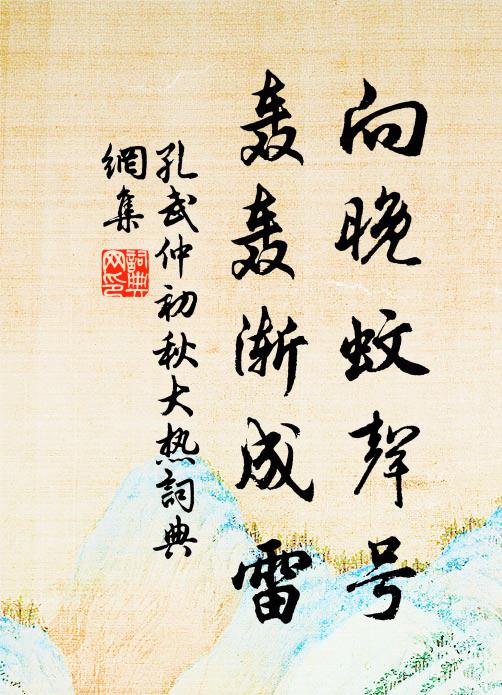 向晚蚊聲号
轰轰渐成雷
孔武仲初秋大热詞典
網集
詞典
网印